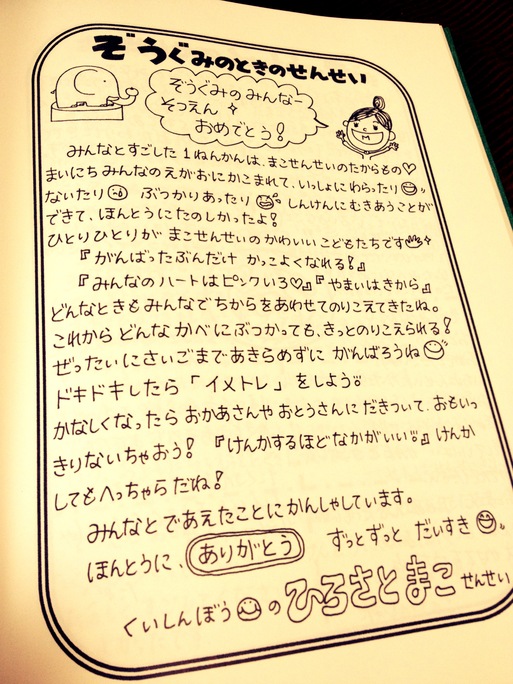 ぞうぐみのときのせんせい
ぞうぐみのみんなー
そつえん
おめでとう!
みんなとすごした1ねんかんは、まこせんせいのたからもの♡
まいにちみんなのえがおにかこまれて、いっしょにわらったり
ないたり ぶつかりあったり しんけんにむきあうことが
できて、ほんとうにたのしかったよ!
ひとりひとりが まこせんせいの かわいい こどもたちです
『がんばったぶんだけ かっこよくなれる!』
『みんなのハートはピンクいろ♡』『やまいはきから』
どんなときもみんなでちからをあわせてのりこえてきたね。
これから どんな かべにぶつかっても、きっとのりこえられる!
ぜったいにさいごまであきらめずに がんばろうね
ドキドキしたら「イメトレ」をしよう。
かなしくなったら おかあさんや おとうさんに だきついて、おもいっ
きりないちゃおう! 『けんかするほどなかがいい』 けんか
してもへっちゃらだね!
みんなとであえたことにかんしゃしています。
ほんとうに、ありがとう ずっとずっと だいすき
くいしんぼう の ひろさとまこ せんせい